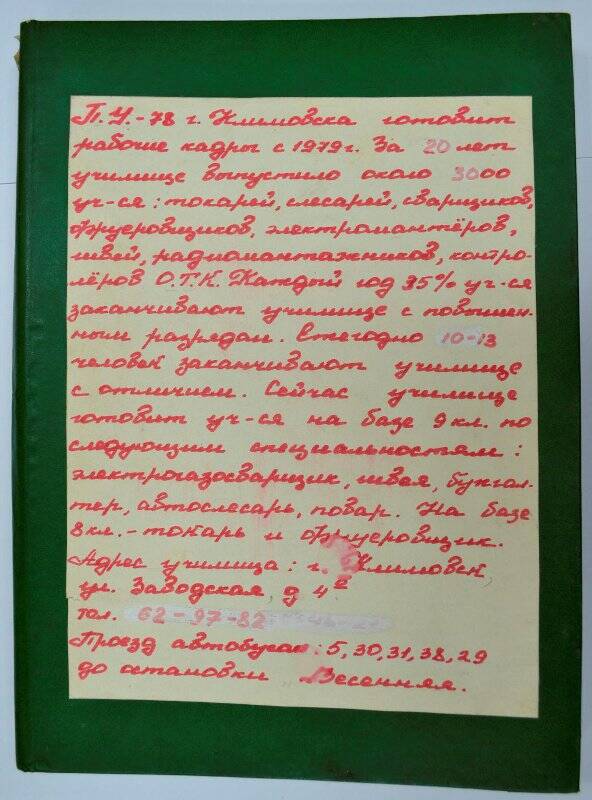 П.У.-78 г. Климовска готовит
рабочие кадры с 1979г. За 20 лет
училище выпустило около 3000
уч-ся: токарей, слесарей, сварщиков,
фрезеровщиков, электромантёров,
швей, радиомантажников, контро-
лёров О.Т.К. Каждый год 35% уч-ся
заканчивают училище с повышен-
ным разрядом. Ежегодно 10-13
человек заканчивают училище
с отличием. Сейчас училище
готовит уч-ся на базе 9 кл. по
следующим специальностям:
электрогазосварщик, швея, бухгал-
тер, автослесарь, повар. На базе
8 кл. - токарь и фрезеровщик.
Адрес училища: г. Климовск
ул. Заводская, д 4е
тел. 62-97-82
Проезд автобусам: 5, 30, 31, 38, 29
до остановки Весенняя.